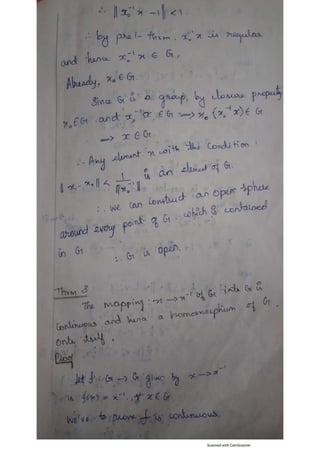 ∴ ‖ x₀⁻¹x − 1 ‖ < 1.
∴ by pre1- thrm. x₀⁻¹x is regular
and hence x₀⁻¹x ∈ G,
Already, x₀ ∈ G.
Since G is a group, by closure property
x₀ ∈ G and x₀⁻¹x ∈ G ⟹ x₀ (x₀⁻¹x) ∈ G
⟹ x ∈ G.
∴ Any element x with the condition
‖ x − x₀ ‖ < 1/‖x₀⁻¹‖ is an element of G.
∴ we can construct an open sphere
around every point of G which is contained
in G. ∴ G is open.
Thrm 3
The mapping x → x⁻¹ of G into G is
continuous and hence a homomorphism of G
onto itself.
Proof
let f: G → G given by x → x⁻¹
is f(x) = x⁻¹ ∀ x ∈ G
We've to prove f is continuous
Scanned with CamScanner